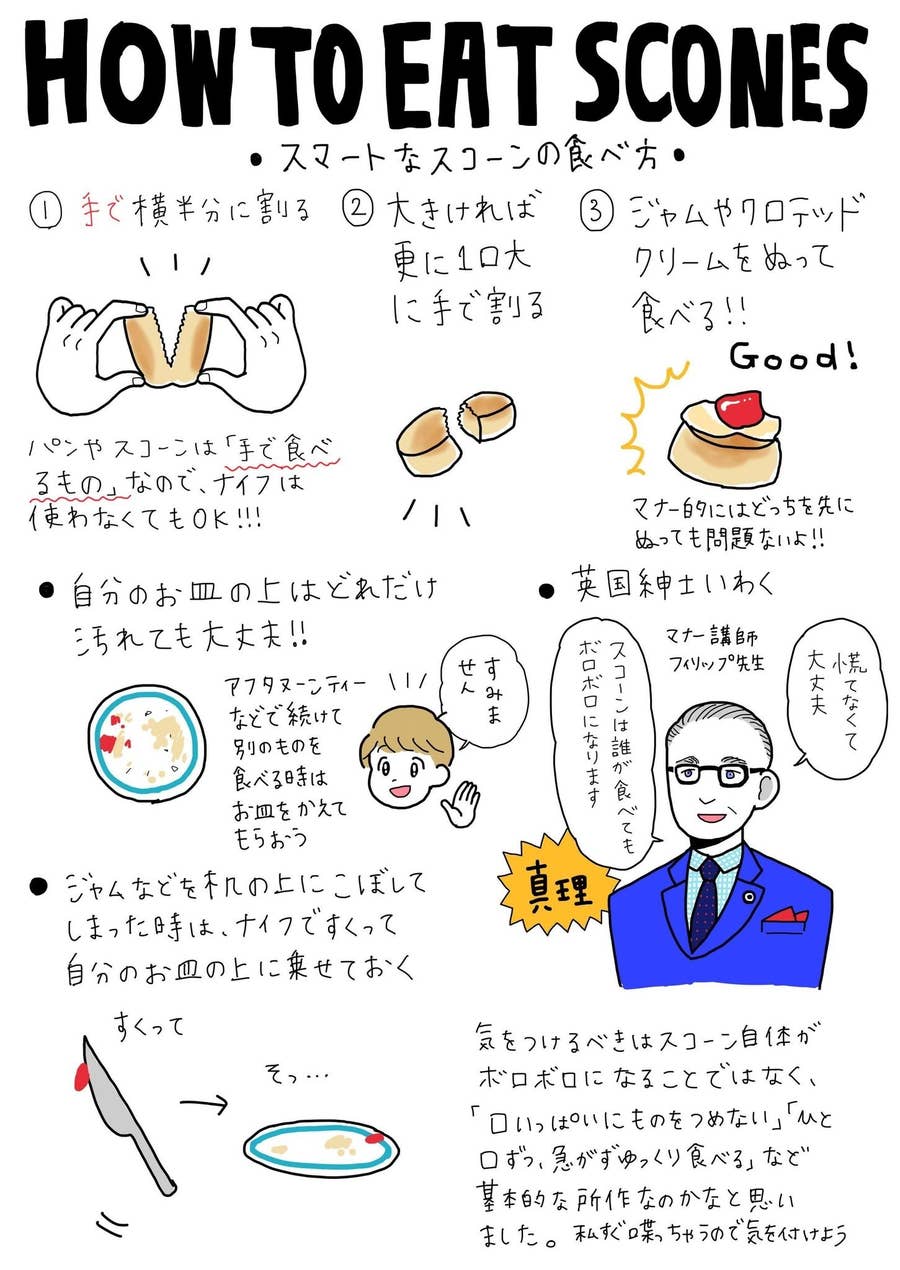 HOW TO EAT SCONES
• スマートなスコーンの食べ方 •
① 手で横半分に割る
パンやスコーンは「手で食べ
るもの」なので、ナイフは
使わなくてもOK!!!
② 大きければ
更に1口大
に手で割る
③ ジャムやクロテッド
クリームをぬって
食べる!!
Good!
マナー的にはどっちを先に
ぬっても問題ないよ!!
● 自分のお皿の上はどれだけ
汚れても大丈夫!!
アフタヌーンティー
などで続けて
別のものを
食べる時は
お皿をかえて
もらおう
すみま
せん
● 英国紳士いわく
マナー講師
フィリップ先生
慌てなくて
大丈夫
スコーンは誰が食べても
ボロボロになります
真理
● ジャムなどを机の上にこぼして
しまった時は、ナイフですくって
自分のお皿の上に乗せておく
すくって
そっ…
気をつけるべきはスコーン自体が
ボロボロになることではなく、
「口いっぱいにものをつめない」「ひと
口ずつ、急がずゆっくり食べる」など
基本的な所作なのかなと思い
ました。私すぐ喋っちゃうので気を付けよう